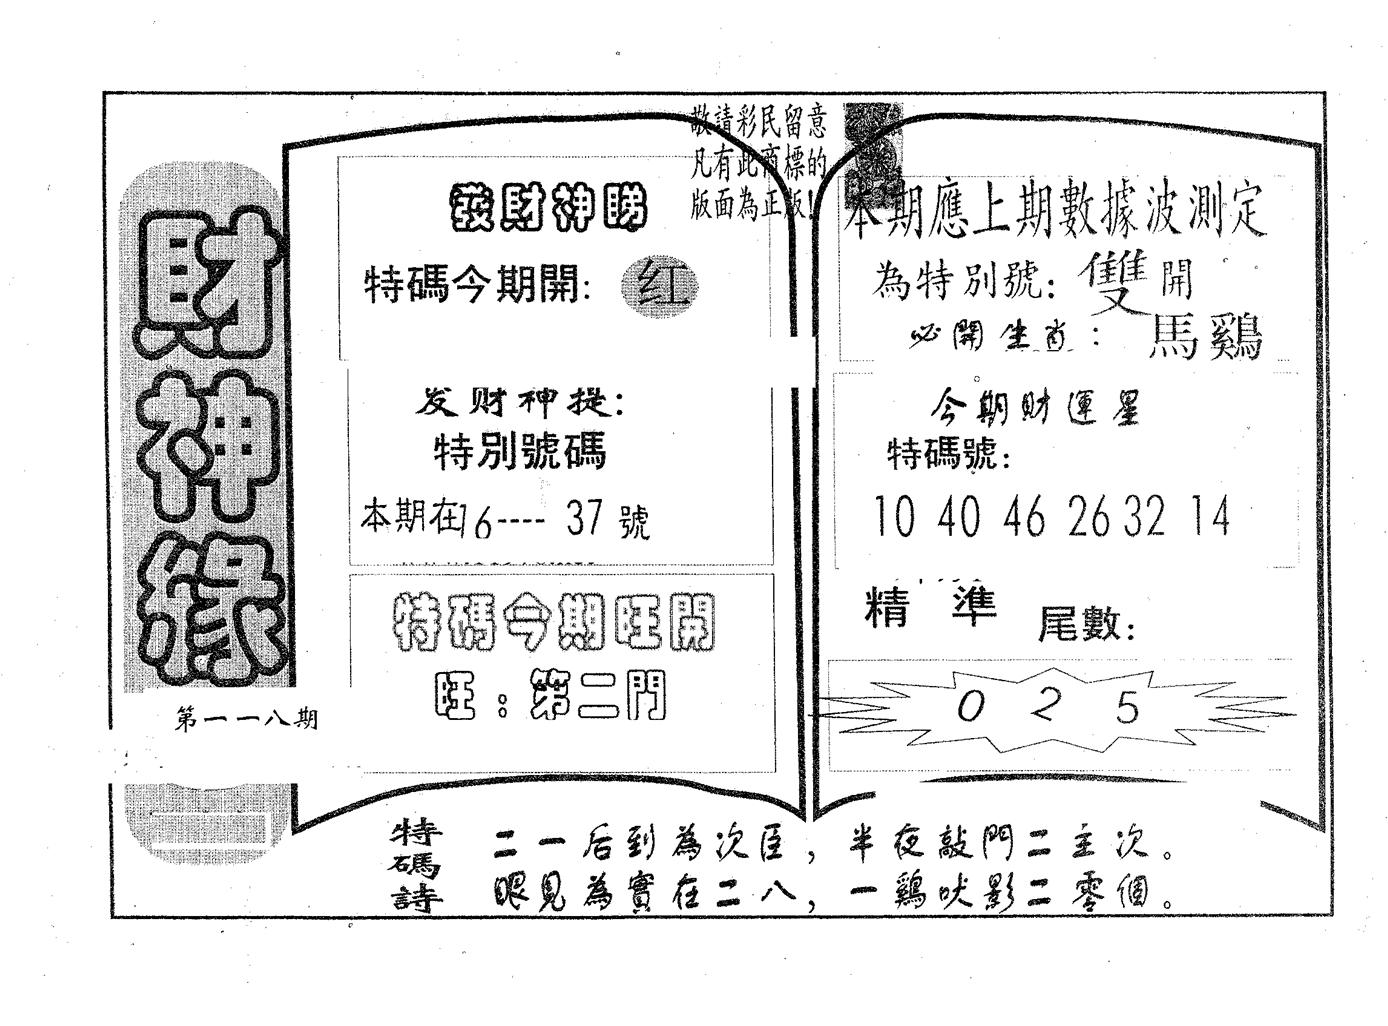 財神緣
第一一八期
敬請彩民留意
凡有此商標的
版面為正版!
發財神睇
特碼今期開: 红
发财神提:
特別號碼
本期在16---- 37 號
特碼今期旺開
旺:第二門
本期應上期數據波測定
為特別號: 雙 開
必開生肖: 馬鷄
今期財運星
特碼號:
10 40 46 26 32 14
精準 尾數:
0 2 5
特碼詩
二一后到為次臣,半夜敲門二主次。
眼見為實在二八,一鷄吠影二零個。